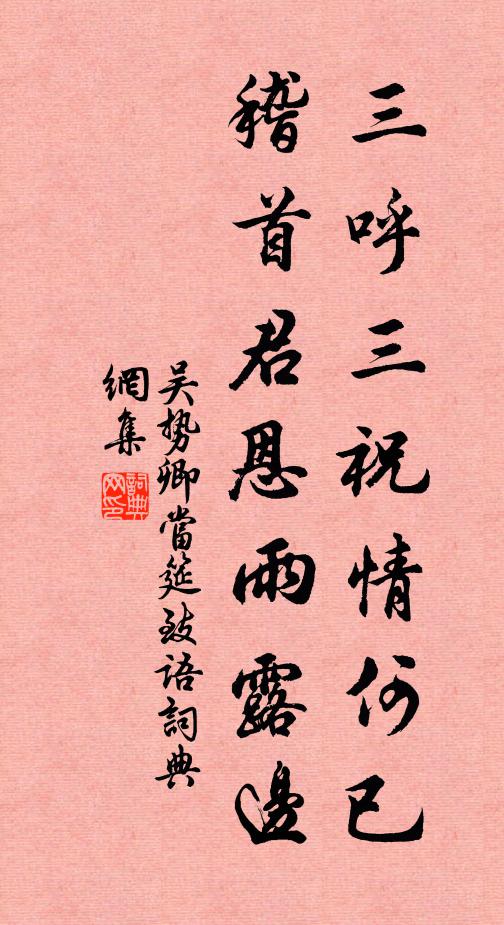 三呼三祝情何已
稽首君恩雨露邊
吴势卿當筵致語詞典
網集
詞典
网印